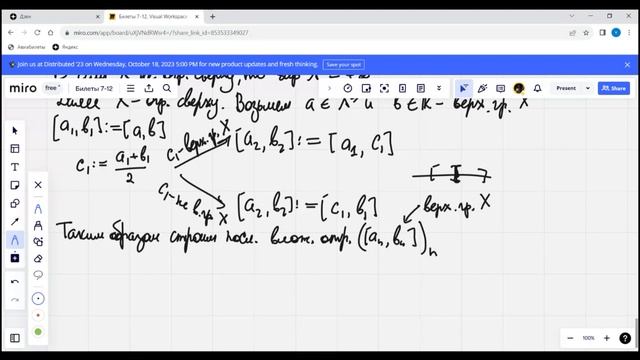 Дзен
Билеты 7-12, Visual Workspace
miro.com/app/board/uXjVNdRWsr4=/?share_link_id=853533349027
Авиабилеты Яндекс
Join us at Distributed '23 on Wednesday, October 18, 2023 5:00 PM for new product updates and fresh thinking. Save your spot
miro free Билеты 7-12 Present Share
X - огр. сверху. Возьмем a ∈ X и b ∈ ℝ - верх. гр. X
[a₁, b₁] := [a, b]
c₁ - верх. гр. X [a₂, b₂] := [a₁, c₁]
c₁ := (a₁ + b₁)/2
c₁ - не в. гр. X [a₂, b₂] := [c₁, b₁]
верх. гр. X
Таким образом строим посл. влож. отр. ([aₙ, bₙ])ₙ
100%